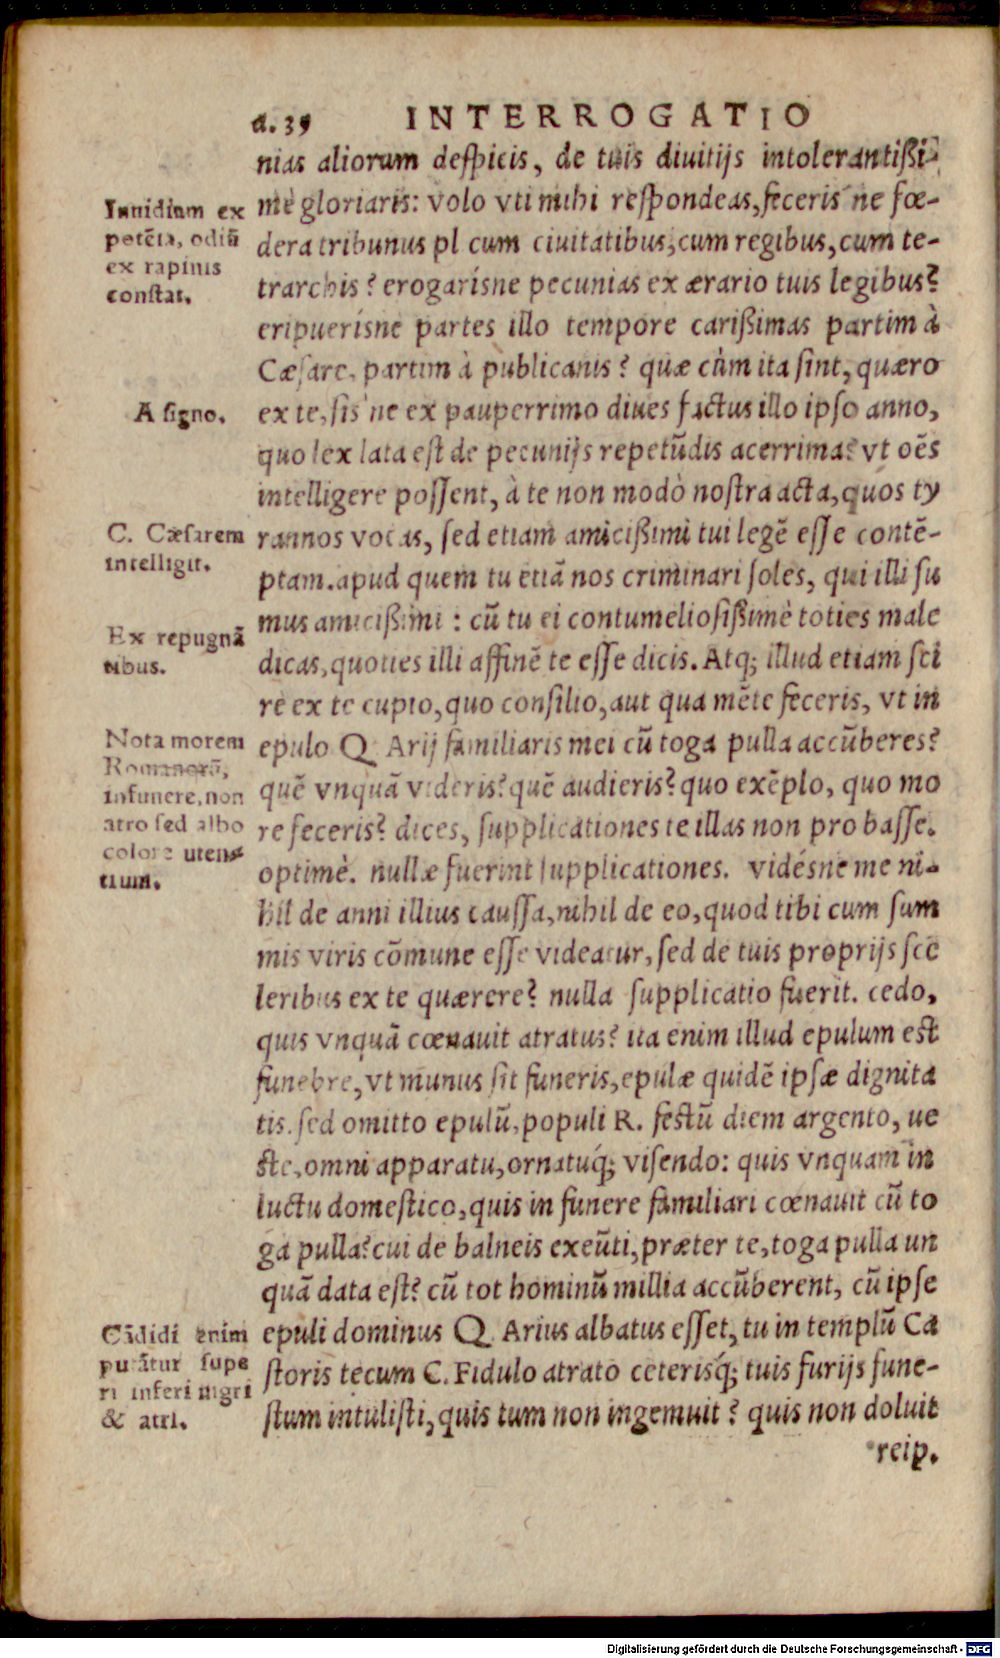 a. 39 INTERROGATIO
nias aliorum despicis, de tuis diuitijs intolerantißi-
mè gloriaris: volo vti mihi respondeas, feceris ne fœ-
dera tribunus pl cum ciuitatibus, cum regibus, cum te-
trarchis? erogarísne pecunias ex ærario tuis legibus?
eripuerísne partes illo tempore carißimas partim à
Cæsare, partim à publicanis? quæ cùm ita sint, quæro
ex te, sis ne ex pauperrimo diues factus illo ipso anno,
quo lex lata est de pecunijs repetũdis acerrima? vt oẽs
intelligere possent, à te non modò nostra acta, quos ty
rannos vocas, sed etiam amicißimi tui legẽ esse contẽ-
ptam. apud quem tu etiã nos criminari soles, qui illi su
mus amicißimi : cũ tu ei contumeliosißimè toties male
dicas, quoties illi affinẽ te esse dicis. Atq; illud etiam sci
re ex te cupio, quo consilio, aut qua mẽte feceris, vt in
epulo Q. Arij familiaris mei cũ toga pulla accũberes?
quẽ vnquã videris? quẽ audieris? quo exẽplo, quo mo
re feceris? dices, supplicationes te illas non probasse.
optimè. nullæ fuerint supplicationes. vidésne me ni-
hil de anni illius caussa, nihil de eo, quod tibi cum sum
mis viris cõmune esse videatur, sed de tuis proprijs sce
leribus ex te quærere? nulla supplicatio fuerit. cedo,
quis vnquã cœnauit atratus? ita enim illud epulum est
funebre, vt munus sit funeris, epulæ quidẽ ipsæ dignita
tis. sed omitto epulũ, populi R. festũ diem argento, ue
ste, omni apparatu, ornatuq́; visendo: quis vnquam in
luctu domestico, quis in funere familiari cœnauit cũ to
ga pulla? cui de balneis exeũti, præter te, toga pulla un
quã data est? cũ tot hominũ millia accũberent, cũ ipse
epuli dominus Q. Arius albatus esset, tu in templũ Ca
storis tecum C. Fidulo atrato ceterisq́; tuis furijs fune-
stum intulisti, quis tum non ingemuit? quis non doluit
reip.
Inuidiam ex
petẽta, odiũ
ex rapinis
constat.
A signo.
C. Cæsarem
intelligit.
Ex repugnã
tibus.
Nota morem
Romanorũ,
in funere, non
atro sed albo
colore uten-
tium.
Cãdidi enim
putãtur supe
ri inferi nigri
& atri.
Digitalisierung gefördert durch die Deutsche Forschungsgemeinschaft - DFG